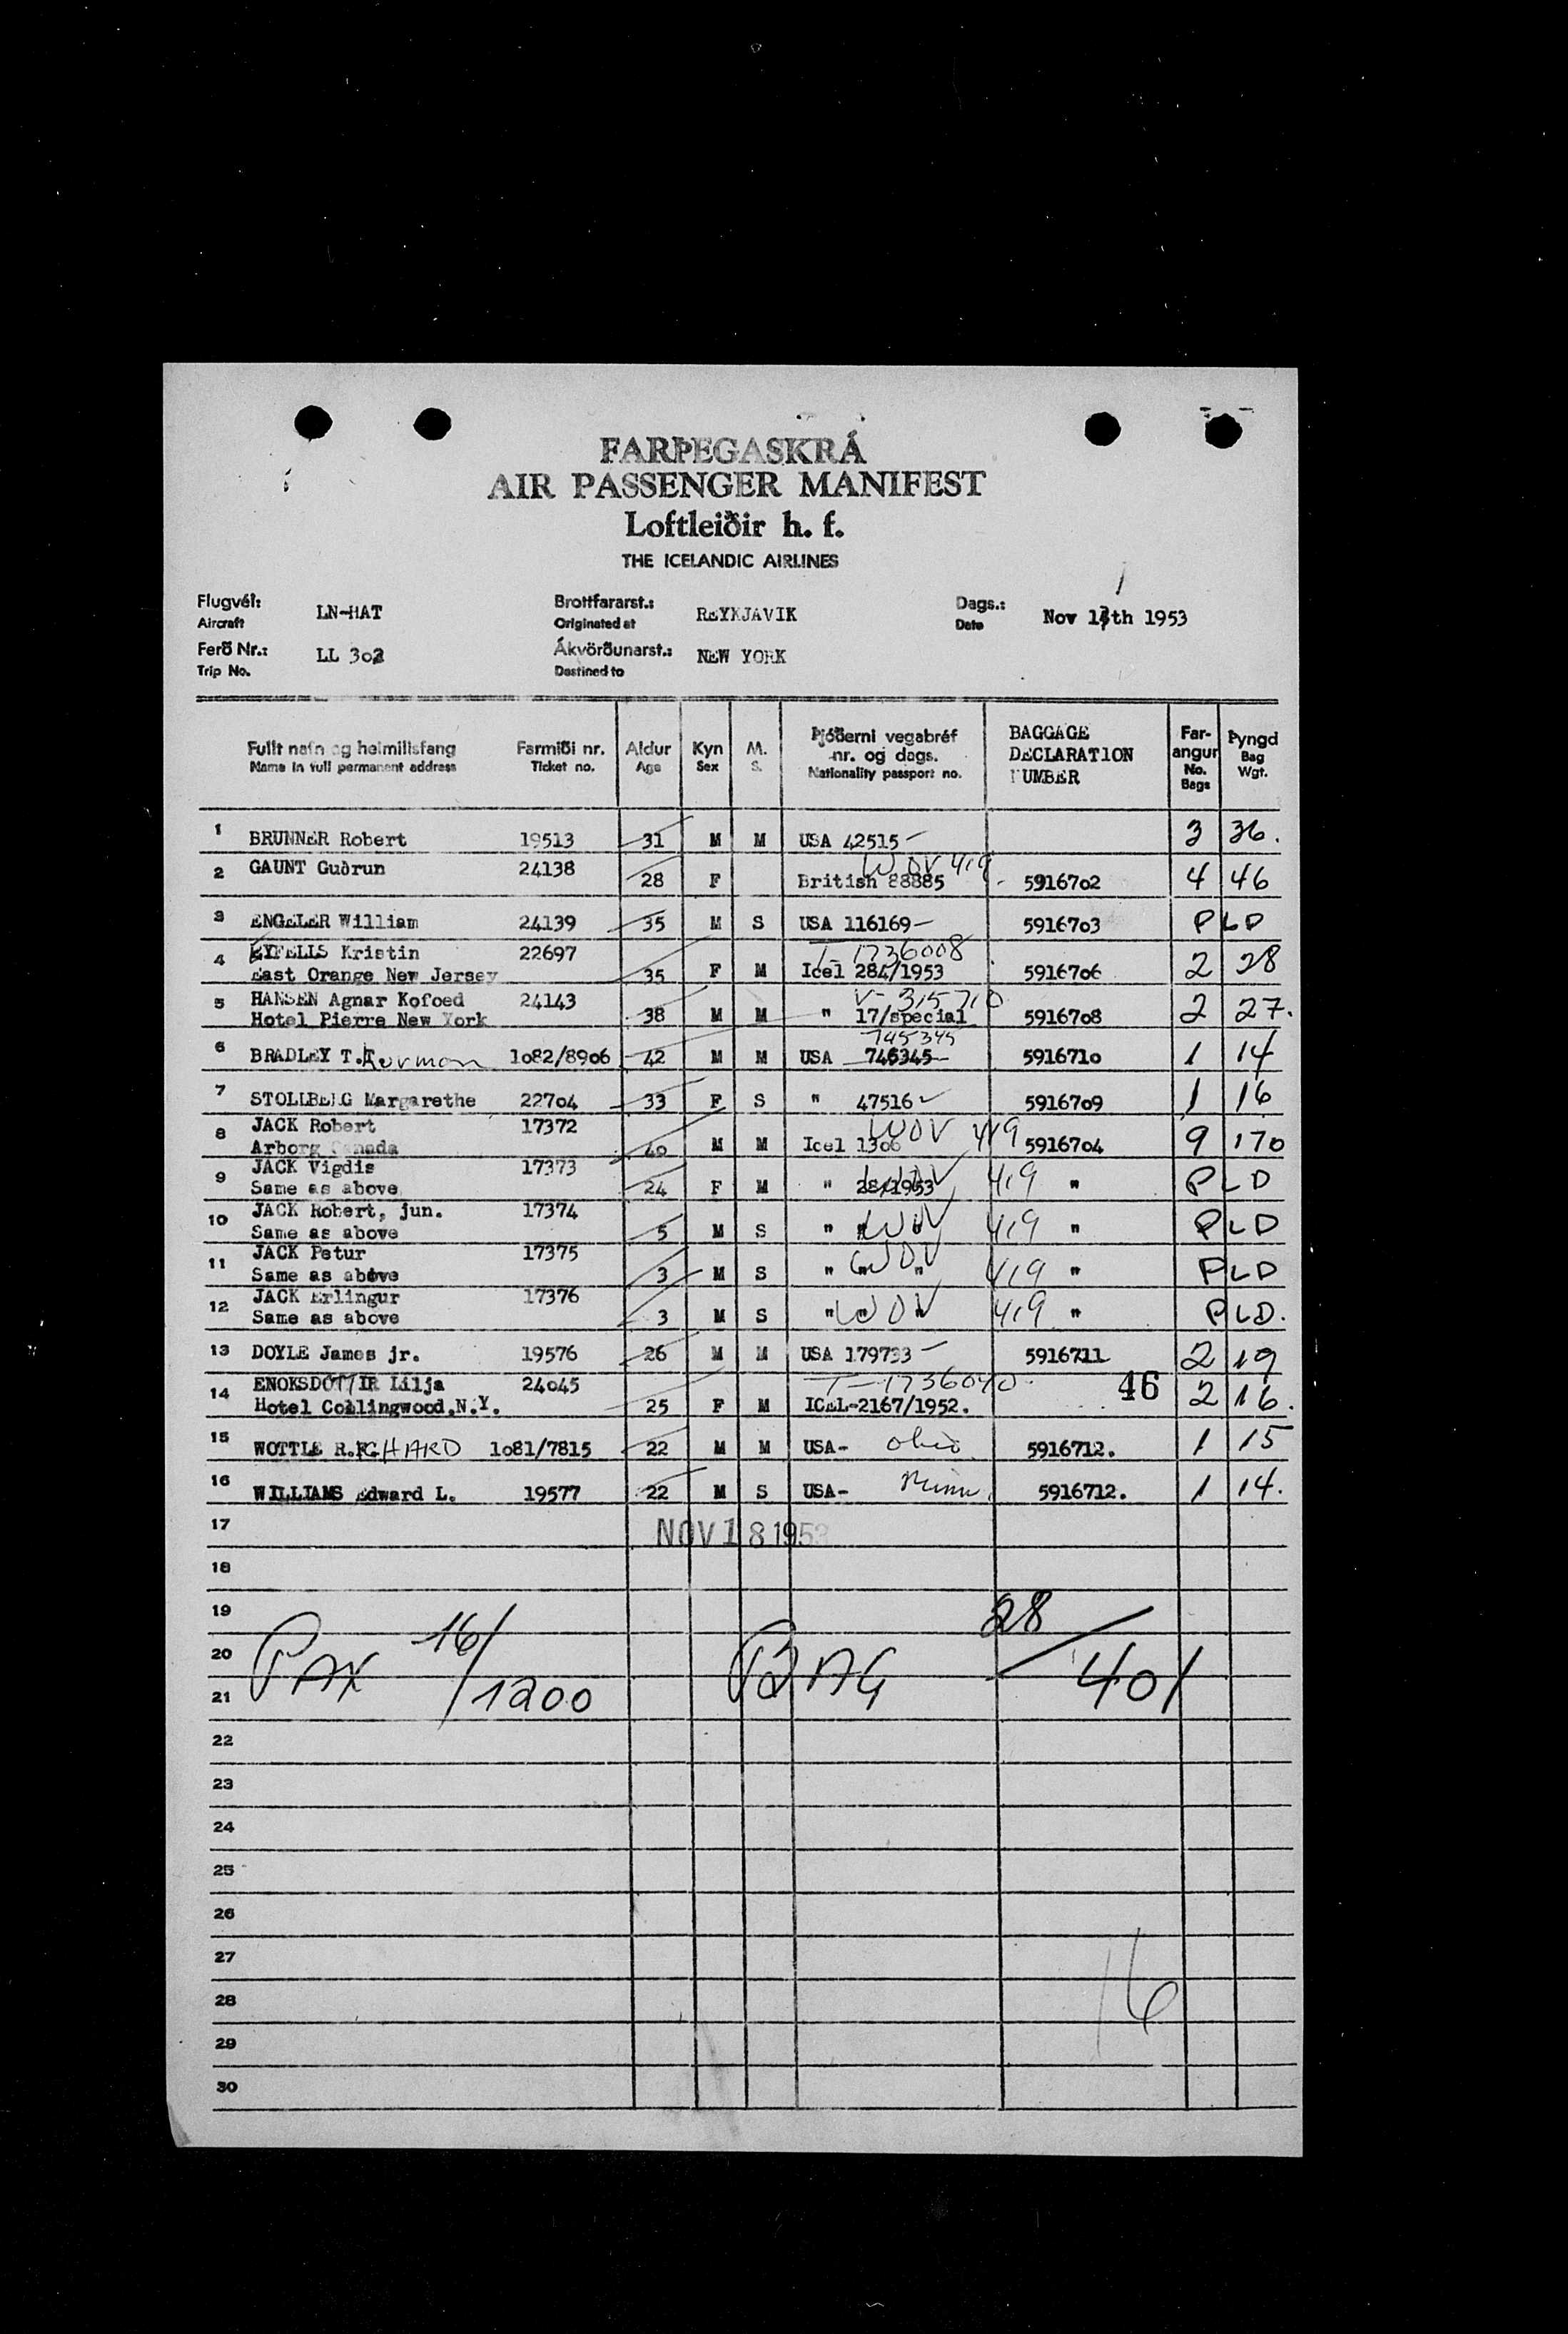 FARÞEGASKRÁ
AIR PASSENGER MANIFEST
Loftleiðir h. f.
THE ICELANDIC AIRLINES
Flugvél: LN-HAT Brottfararst.: REYKJAVIK Dags.: Nov 13th 1953
Aircraft Originated at Date
Ferð Nr.: LL 302 Ákvörðunarst.: NEW YORK
Trip No. Destined to
Fullt nafn og heimilisfang Farmiði nr. Aldur Kyn M. Þjóðerni vegabréf nr. og dags. BAGGAGE DECLARATION NUMBER Far-angur Þyngd
Name in full permanent address Ticket no. Age Sex S. Nationality passport no. No. Bags Bag Wgt.
1 BRUNNER Robert 19513 31 M M USA 42515 3 36.
WOV 419
2 GAUNT Guðrun 24138 28 F British 88885 5916702 4 46
3 ENGELER William 24139 35 M S USA 116169 5916703 PLD
4 EYFELLS Kristin 22697 T-1736008
East Orange New Jersey 35 F M Icel 284/1953 5916706 2 28
5 HANSEN Agnar Kofoed 24143 V-315710
Hotel Pierre New York 38 M M " 17/special 5916708 2 27.
745345
6 BRADLEY T. Turman 1082/8906 42 M M USA 746345 5916710 1 14
7 STOLLBERG Margarethe 22704 33 F S " 47516 5916709 1 16
8 JACK Robert 17372 WOV 419
Arborg Canada 40 M M Icel 1306 5916704 9 170
9 JACK Vigdis 17373 WOV 419
Same as above 24 F M " 28/1953 " PLD
10 JACK Robert, jun. 17374 WOV 419
Same as above 5 M S " " " " PLD
11 JACK Petur 17375 WOV 419
Same as above 3 M S " " " " PLD
12 JACK Erlingur 17376 WOV 419
Same as above 3 M S " " " " PLD.
13 DOYLE James jr. 19576 26 M M USA 179793 5916711 2 19
14 ENOKSDOTTIR Lilja 24045 T-1736040 46
Hotel Collingwood,N.Y. 25 F M ICEL-2167/1952. 2 16.
15 WOTTLE R. RICHARD 1081/7815 22 M M USA- Ohio 5916712. 1 15
16 WILLIAMS Edward L. 19577 22 M S USA- Minn. 5916712. 1 14.
17 NOV 18 1953
18
19
20 PAX 16/1200 BAG 28/401
21
22
23
24
25
26
27
28 16
29
30